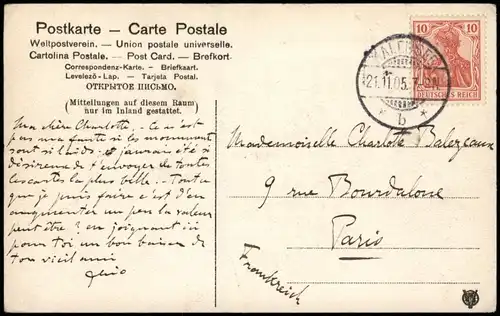 Postkarte – Carte Postale
Weltpostverein. – Union postale universelle.
Cartolina Postale. – Post Card. – Brefkort.
Correspondenz-Karte. – Briefkaart.
Levelező-Lap. – Tarjeta Postal.
ОТКРЫТОЕ ПИСЬМО.
(Mitteilungen auf diesem Raum
nur im Inland gestattet.)
Ma chère Charlotte. Ce n'est
pas ma faute si les monuments
sont si laids. J'aurais été si
désireux de t'envoyer de toutes
les cartes la plus belle. Tout ce
que je puis faire c'est d'en
augmenter un peu la valeur
peut être? en joignant ici
pour toi un bon baiser de
ton vieil ami
10 10
DEUTSCHES REICH
21.11.05.
b
Mademoiselle Charlotte
9 rue Bourdaloue
Paris
Frankreich